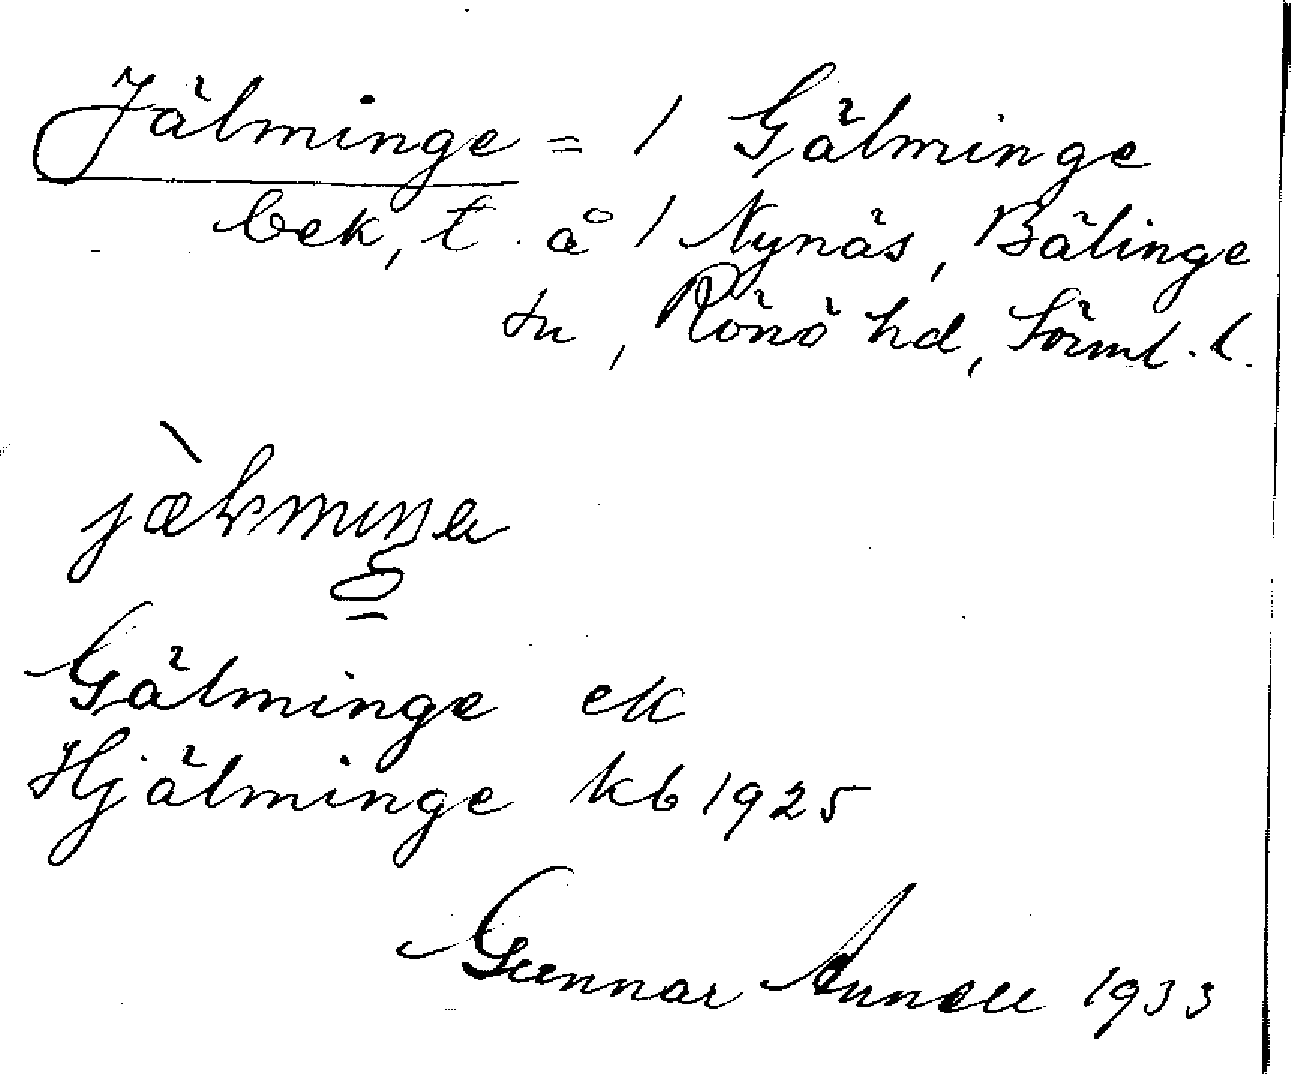 Jälminge = 1 Gälminge
bek, t. å 1 Nynäs, Bälinge
sn, Rönö hd, Sörml. l.
Gälminge ek
Hjälminge kb 1925
Gunnar Annell 1933